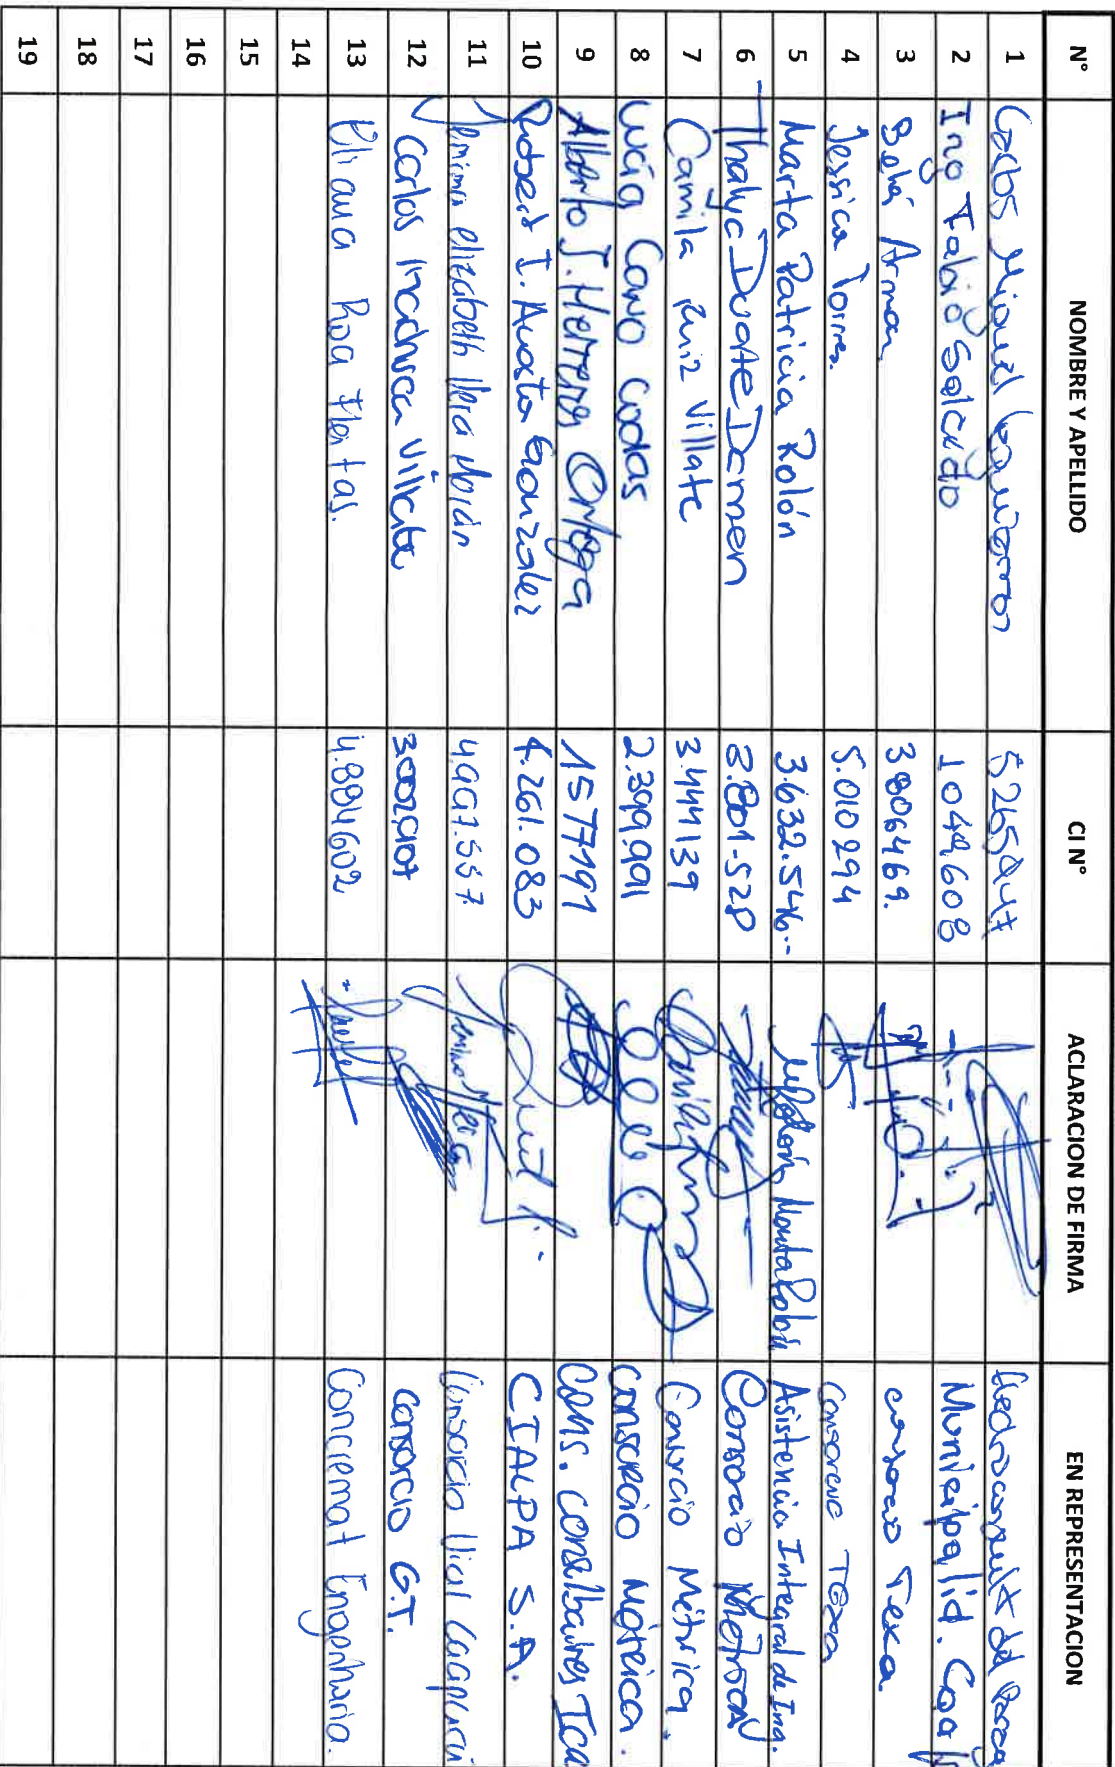 N° NOMBRE Y APELLIDO CI N° ACLARACION DE FIRMA EN REPRESENTACION
1 Carlos Miguel 5265447 del
2 Ing Fabio Salcedo 1044.608 Municipalid. Caa
3 Belén Arman 3806469. consorcio Texa
4 Jessica Torres. 5.010294 Consorcio Texa
5 Marta Patricia Rolón 3.632.546.- Marta Rolón Asistencia Integral de Ing.
6 Thalya Duarte Domen 3.801-528 Consorcio Metrica
7 Camila Ruiz Villate 3.444139 Consorcio Métrica.
8 Lucía Cano Codas 2.399.991 consorcio Métrica.
9 Alberto J. Herrera Ortega 1577191 Cons. Consultores Tca
10 Robert I. Acosta Gonzalez 4.261.083 CIALPA S.A.
11 Jemima elizabeth Mora Morán 4.997.557 Consorcio Vial Caapucú
12 Carlos Villate 3.002.907 consorcio G.T.
13 Eliana Roa Fleitas. 4.884602 Concremat Engenharia.
14
15
16
17
18
19